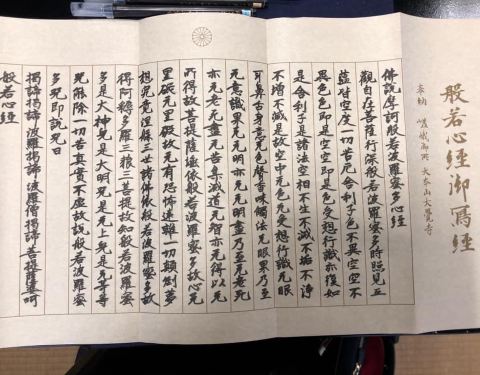 般若心經御寫經
奉納 嵯峨御所 大本山大覺寺
佛説摩訶般若波羅蜜多心經
觀自在菩薩行深般若波羅蜜多時照見五
蘊皆空度一切苦厄舍利子色不異空空不
異色色即是空空即是色受想行識亦復如
是舍利子是諸法空相不生不滅不垢不浄
不增不減是故空中无色无受想行識无眼
耳鼻舌身意无色聲香味觸法无眼界乃至
无意識界无无明亦无无明盡乃至无老死
亦无老死盡无苦集滅道无智亦无得以无
所得故菩提薩埵依般若波羅蜜多故心无
罣礙无罣礙故无有恐怖遠離一切顛倒夢
想究竟涅槃三世諸佛依般若波羅蜜多故
得阿耨多羅三藐三菩提故知般若波羅蜜
多是大神呪是大明呪是无上呪是无等等
呪能除一切苦真實不虚故説般若波羅蜜
多呪即説呪曰
揭諦揭諦 波羅揭諦 波羅僧揭諦 菩提薩婆訶
般若心經